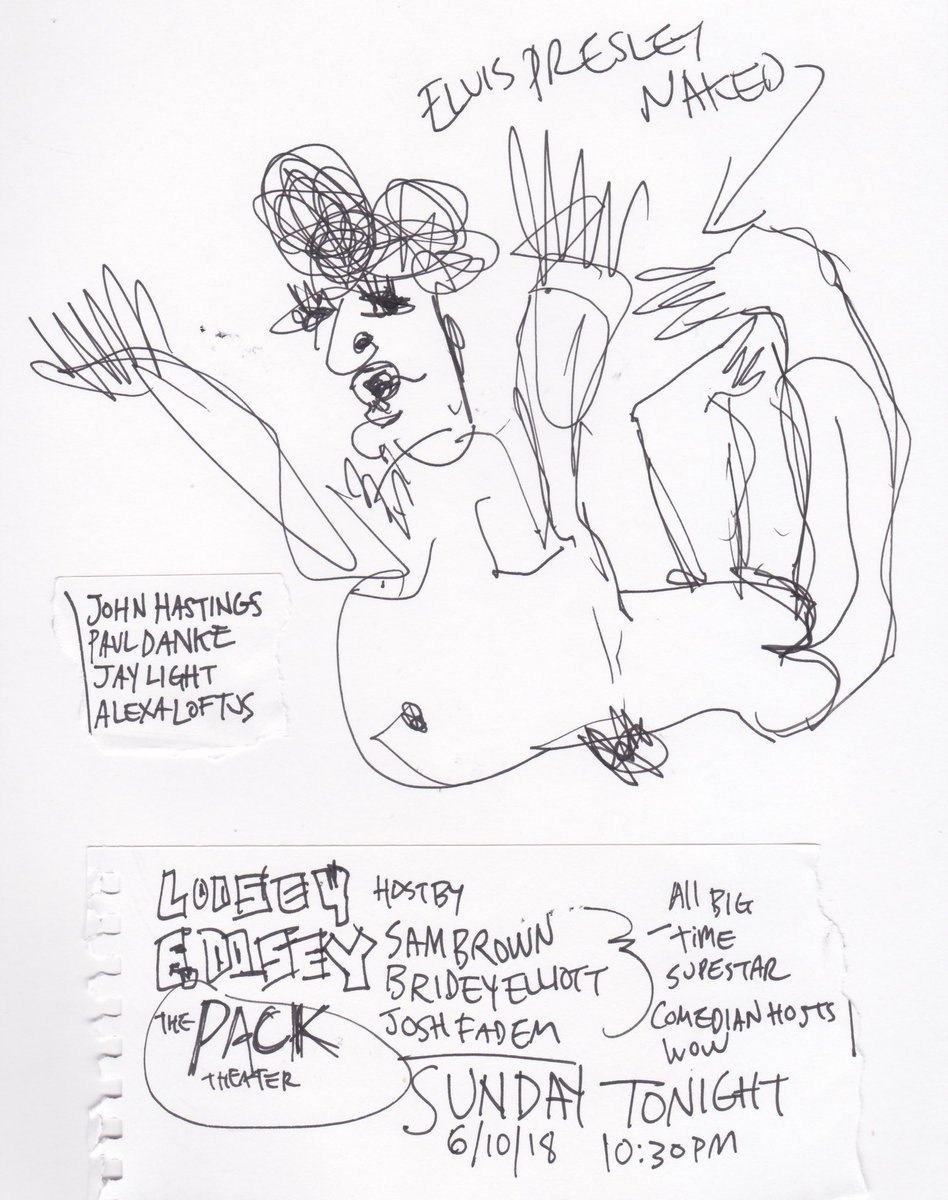 ELVIS PRESLEY
NAKED
JOHN HASTINGS
PAUL DANKE
JAY LIGHT
ALEXA LOFTUS
LOOSEY
GOOSEY
THE PACK
THEATER
HOST BY
SAM BROWN
BRIDEY ELLIOTT
JOSH FADEM
All BIG
TIME
SUPESTAR
COMEDIAN HOSTS
WOW
SUNDAY TONIGHT
6/10/18 10:30PM